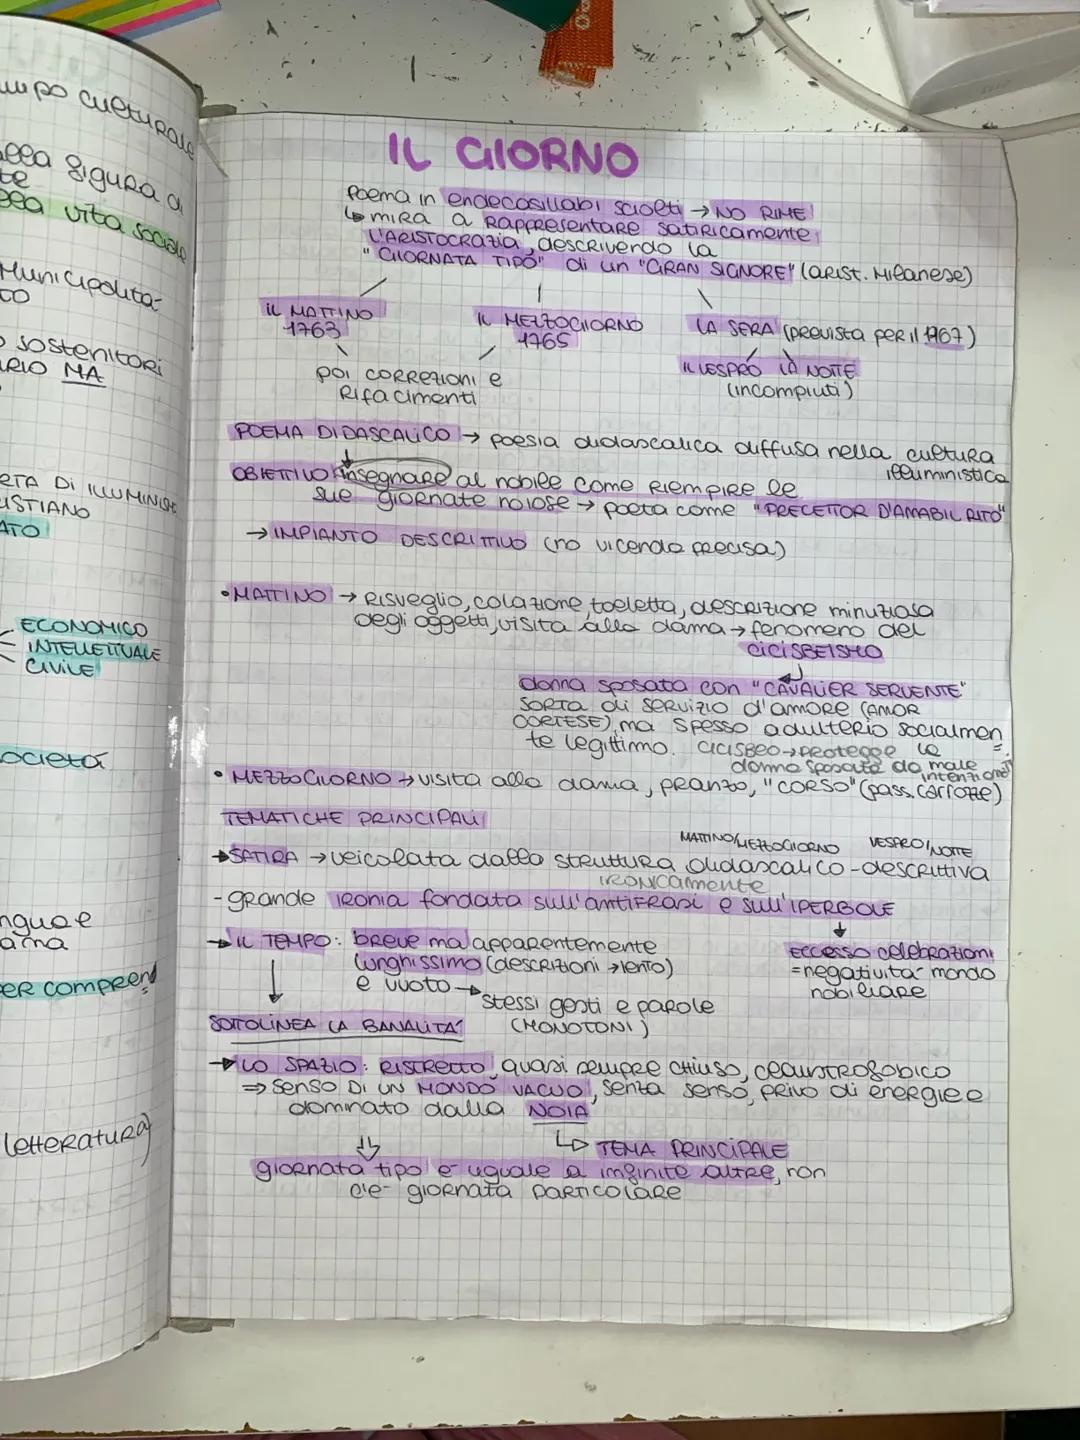 umpo culturale
della figura di
te
della vita sociale
Municipalita-
TO
sostenitori
ARIO MA
ETA DI ILLUMINIS
ISTIANO
ATO
ECONOMICO
INTELLETTUALE
CIVILE
ocietà
ngua e
ama
PER comprend
letteratura)
IL GIORNO
poema in endecasillabi sciolti → NO RIME
↳ mira a rappresentare satiricamente
L'ARISTOCRAZIA, descrivendo la
"GIORNATA TIPO" di un "GRAN SIGNORE" (arist. milanese)
IL MATTINO
1763
IL MEZZOGIORNO
1765
LA SERA (prevista per il 1767)
poi correzioni e
rifacimenti
IL VESPRO LA NOTTE
(incompiuti)
POEMA DIDASCALICO → poesia didascalica diffusa nella cultura
illuministica
OBIETTIVO insegnare al nobile come riempire le
sue giornate noiose → poeta come "PRECETTOR D'AMABIL RITO"
→ IMPIANTO DESCRITTIVO (no vicenda precisa)
• MATTINO → Risveglio, colazione, toeletta, descrizione minuziosa
degli oggetti, visita alla dama → fenomeno del
CICISBEISMO
donna sposata con "CAVALIER SERVENTE"
sorta di servizio d'amore (AMOR
CORTESE), ma spesso adulterio socialmen
te legittimo. CICISBEO → protegge la =.
donna sposata da male
intenzioni
• MEZZOGIORNO → visita alla dama, pranzo, "CORSO" (pass. carrozze)
TEMATICHE PRINCIPALI
MATTINO/MEZZOGIORNO VESPRO/NOTTE
→ SATIRA → veicolata dalla struttura didascalico - descrittiva
IRONICAMENTE
- grande ironia fondata sull'antifrasi e sull'IPERBOLE
→ IL TEMPO: breve ma apparentemente
lunghissimo (descrizioni → lento)
e vuoto → stessi gesti e parole
(MONOTONI)
Eccesso celebrazioni
= negatività mondo
nobiliare
SOTTOLINEA LA BANALITA'
→ LO SPAZIO: RISTRETTO, quasi sempre chiuso, claustrofobico
⇒ senso DI UN MONDO VACUO, senza senso, privo di energie e
dominato dalla NOIA
↳ TEMA PRINCIPALE
giornata tipo e' uguale a infinite altre, non
c'e- giornata particolare